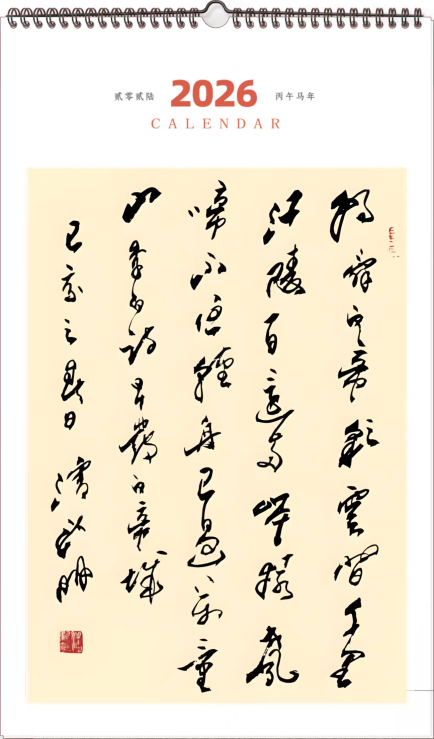 贰零贰陆 2026 丙午马年
CALENDAR
朝辭白帝彩雲間千里
江陵一日還兩岸猿聲
啼不住輕舟已過萬重
山 李白詩早發白帝城
己亥之春日